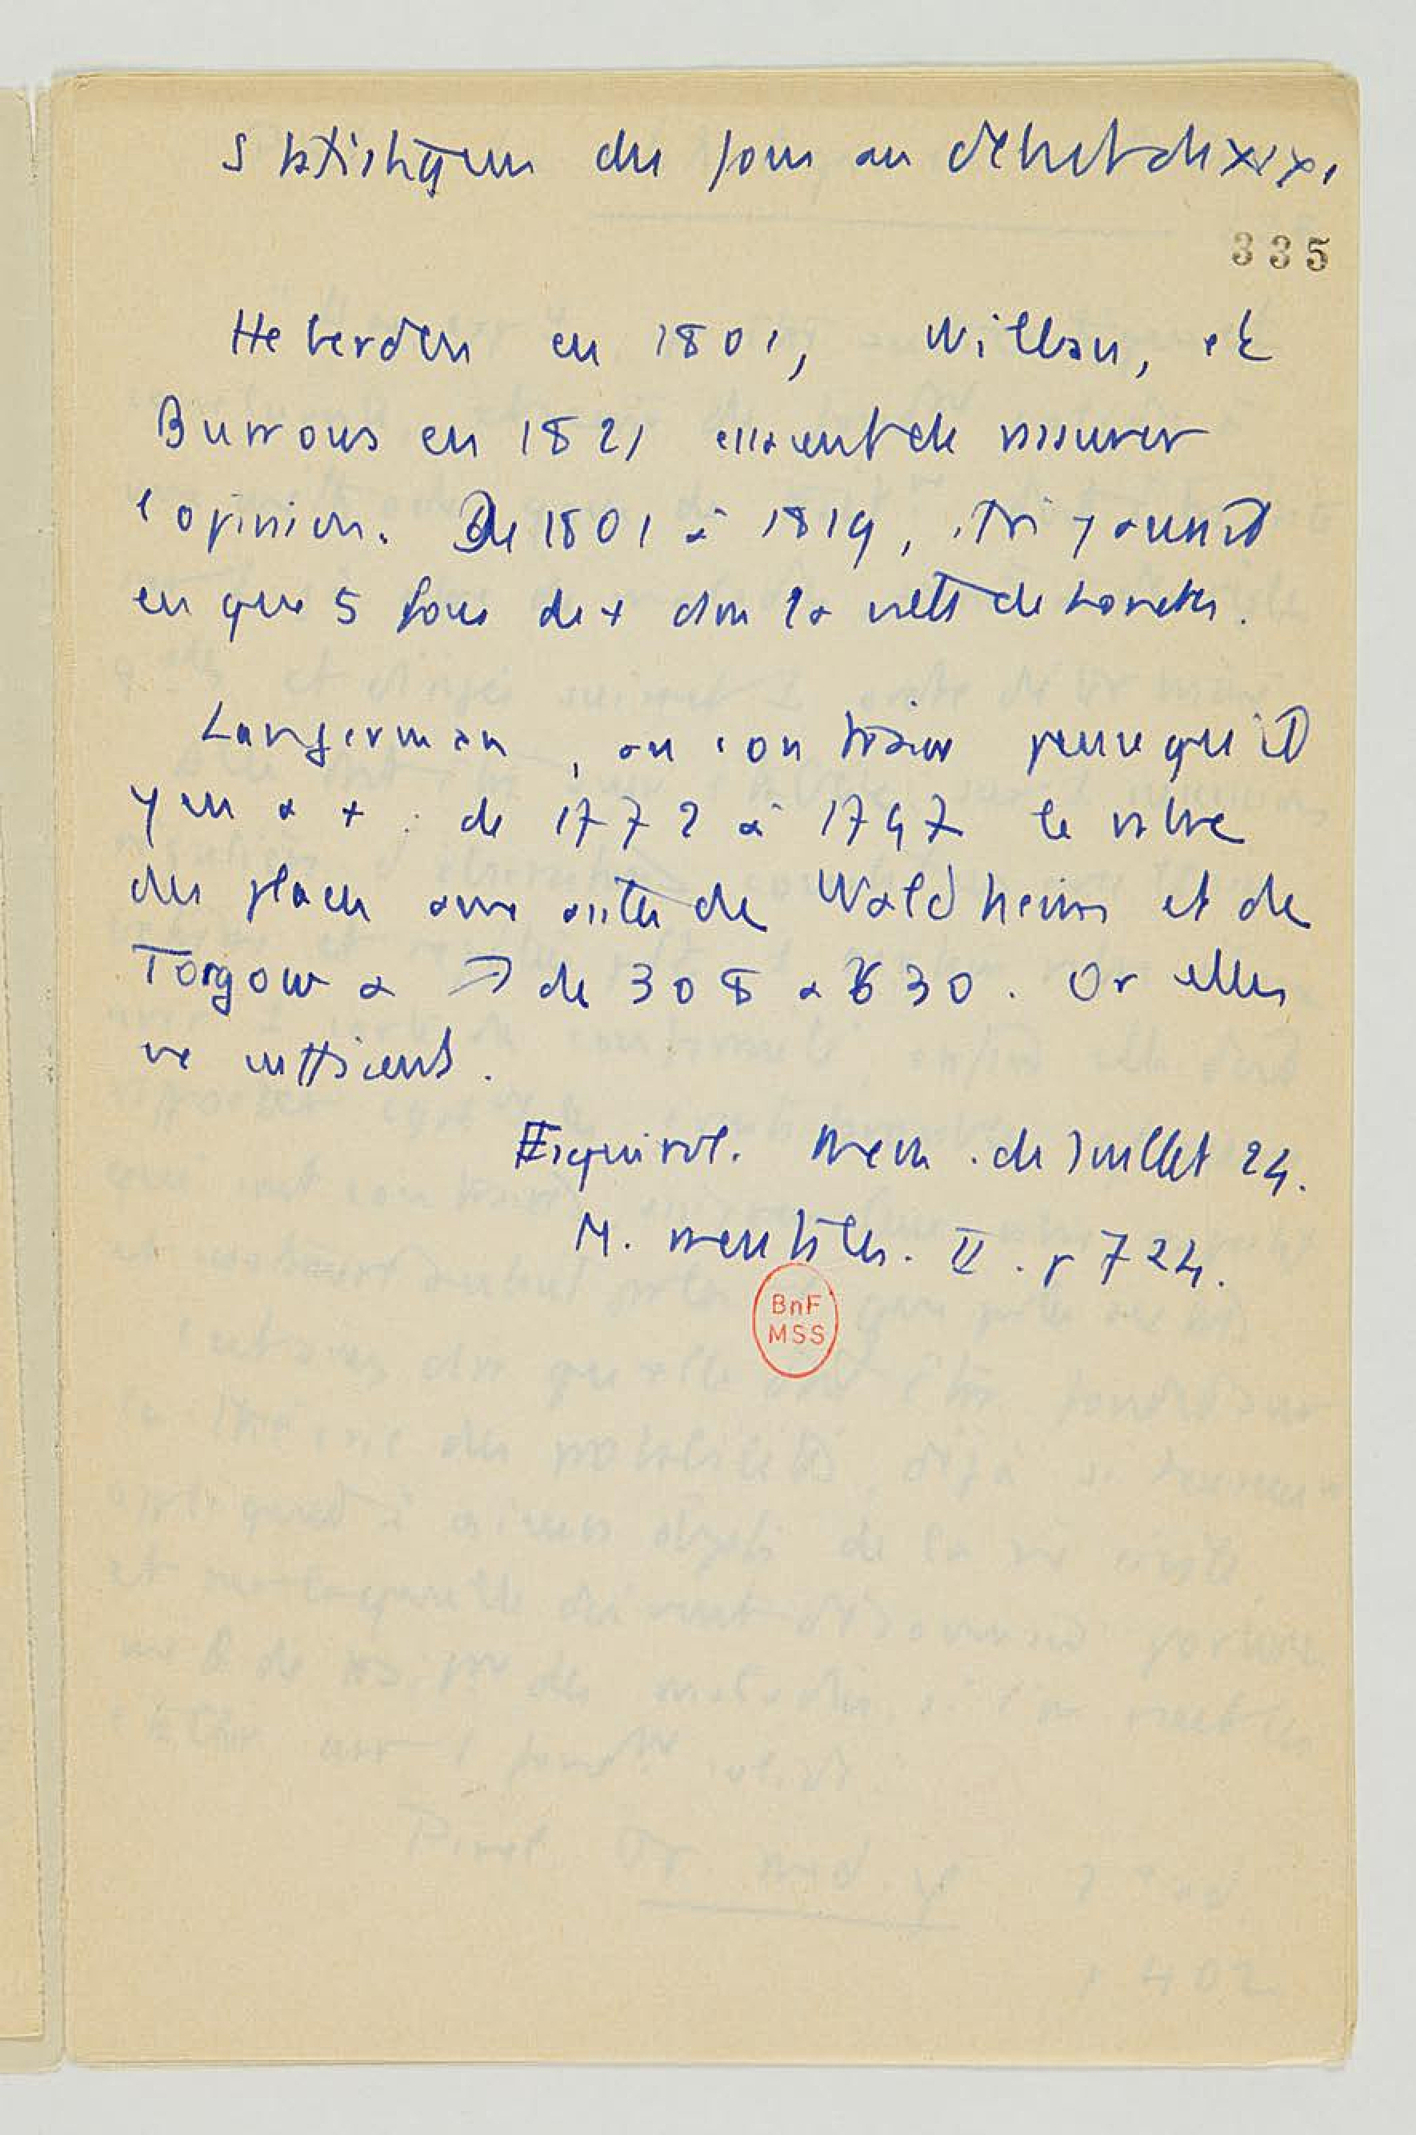 Statistiques des fous au début du XIXe
335
Heberden en 1801, Willan, et
Burrous en 1821 essaient de rassurer
l'opinion. De 1801 à 1819, il n'y aurait
eu que 5 fous de + dans la ville de Londres.
Langerman, au contraire pense qu'il
y en a + : de 1772 à 1797 le nbre
des places aux asiles de Waldheim et de
Torgow a ↗ de 308 à 630. Or elles
ne suffisent.
Esquirol. Mem. de Juillet 24.
M. mentales. II. p 724.
BnF
MSS